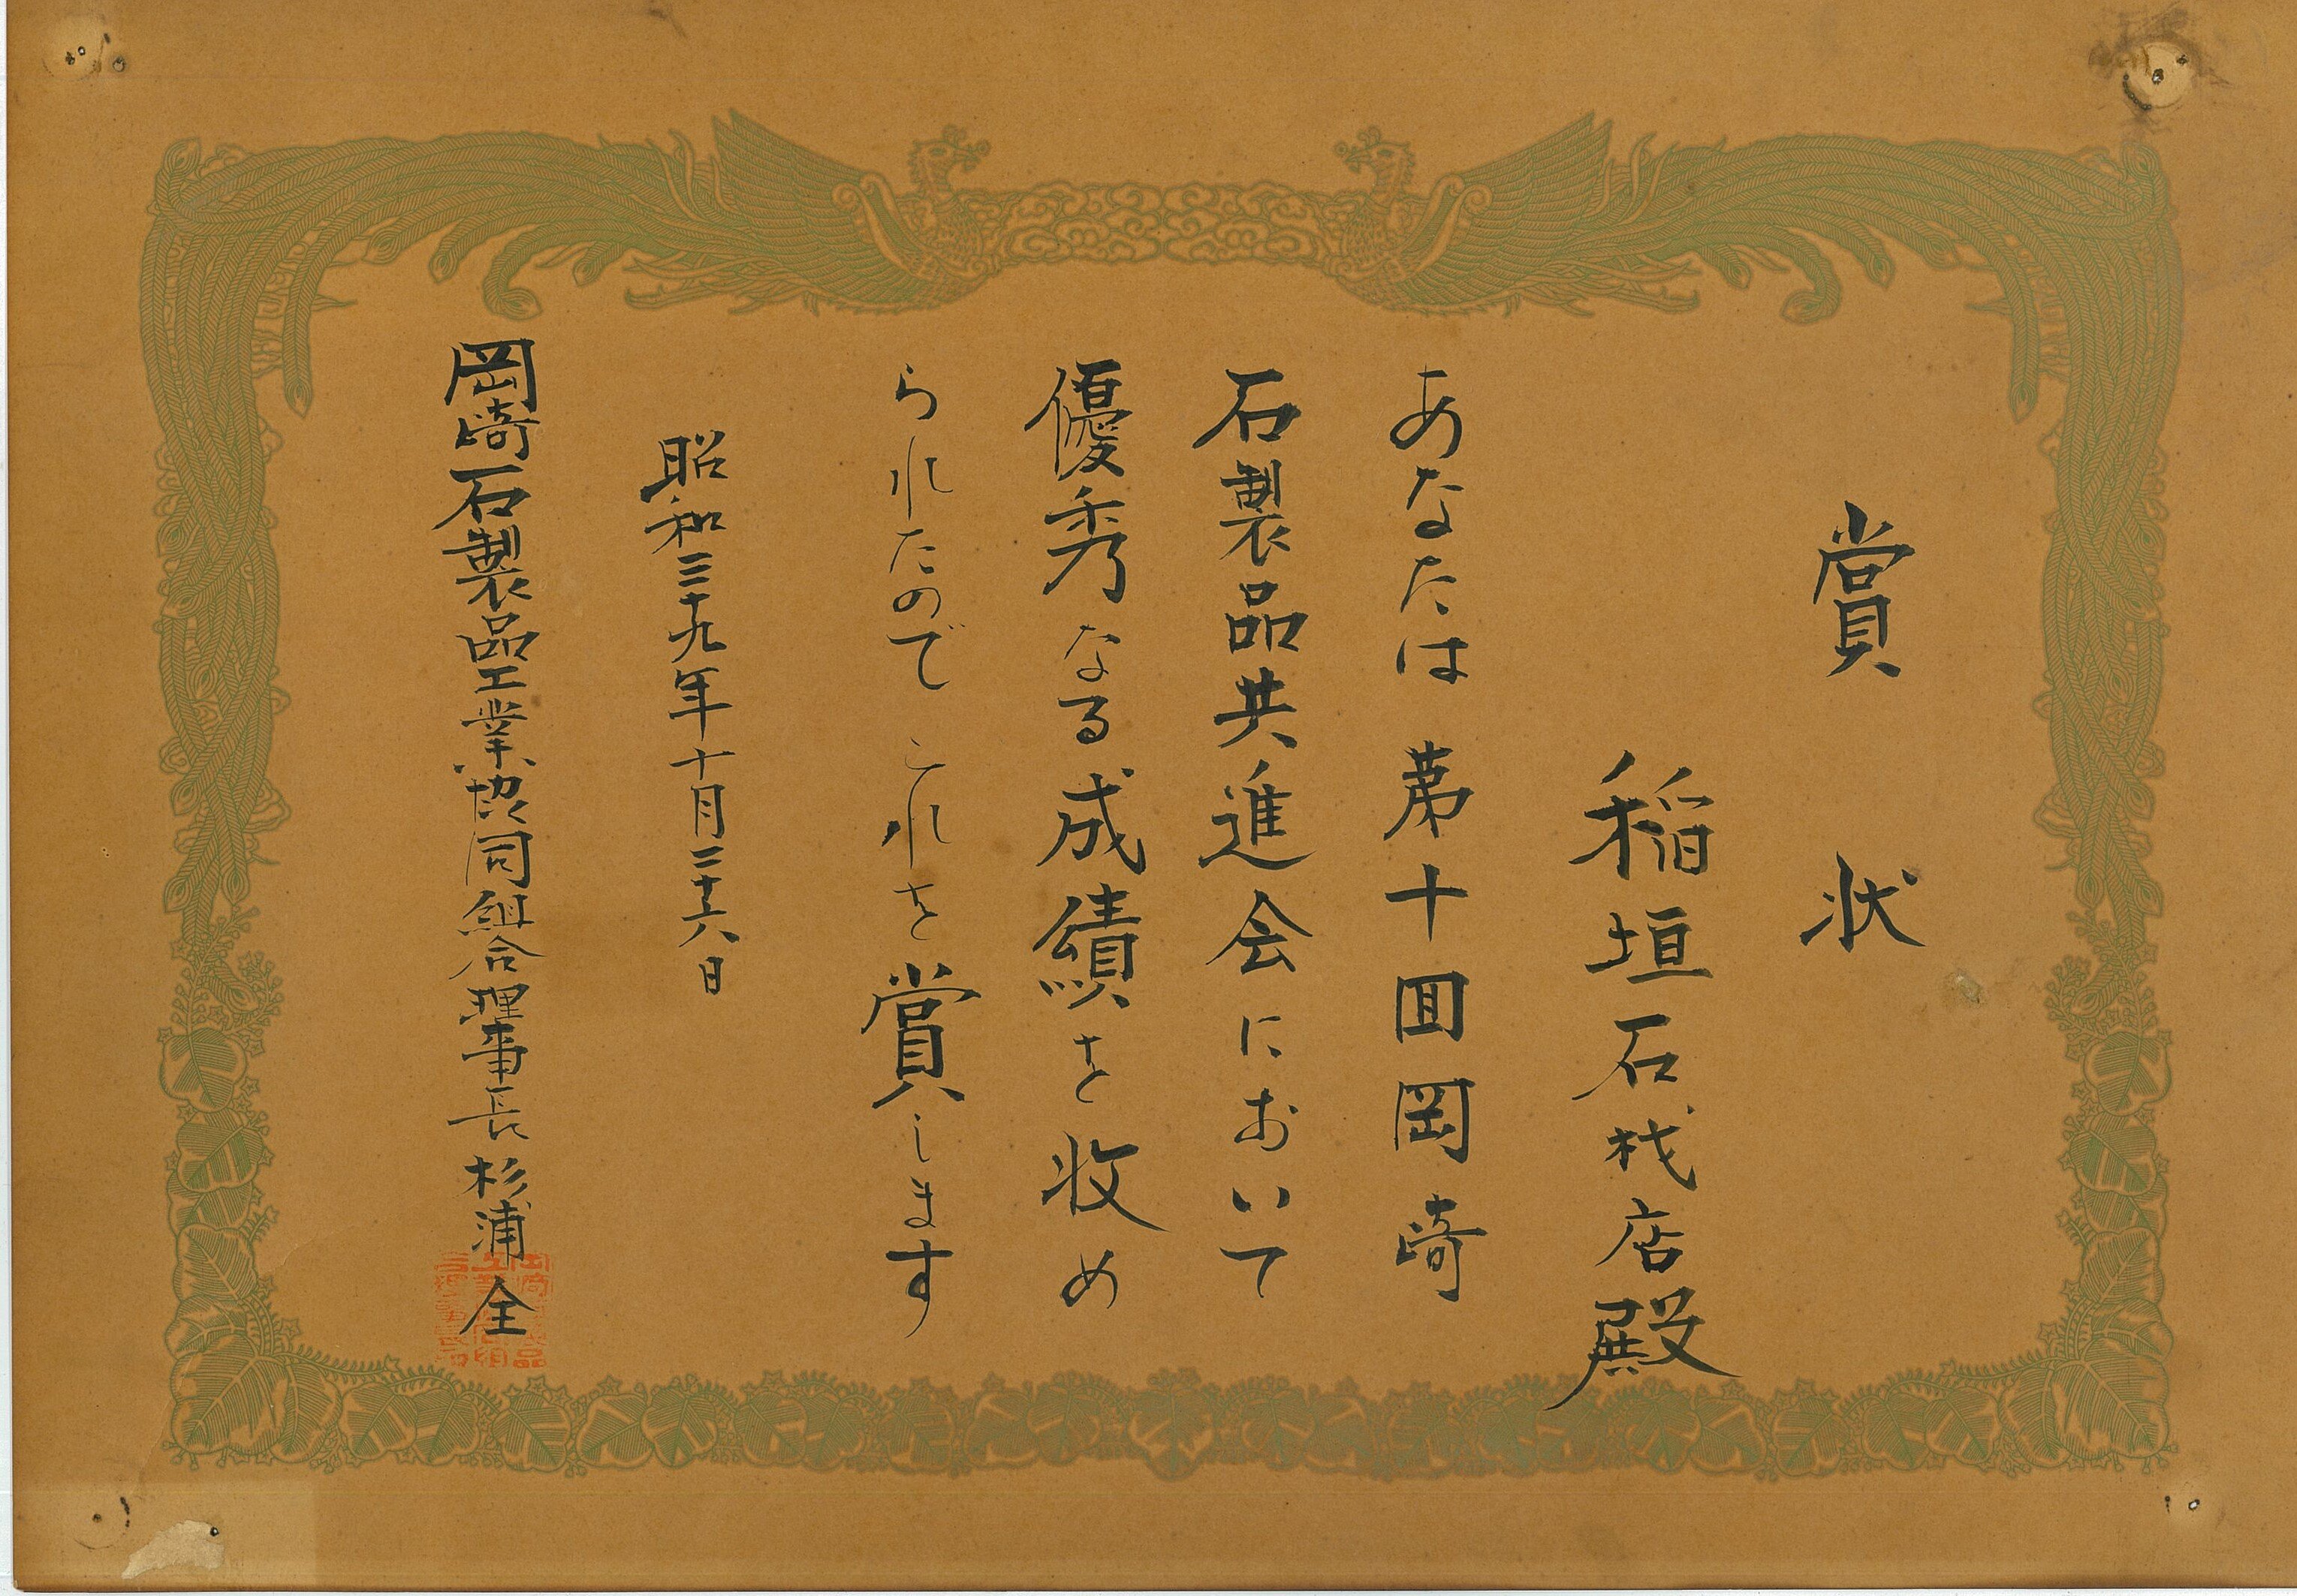 賞状
稲垣石材店殿
あなたは第十回岡崎
石製品共進会において
優秀なる成績を収め
られたのでこれを賞します
昭和三十九年十月二十六日
岡崎石製品工業協同組合理事長 杉浦全